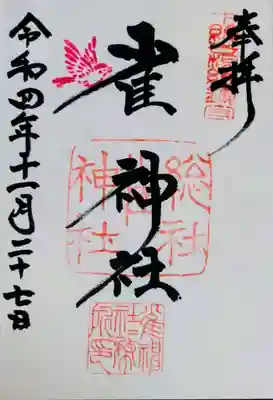 奉拝
雀神社
総社
神社
令和四年十一月二十七日